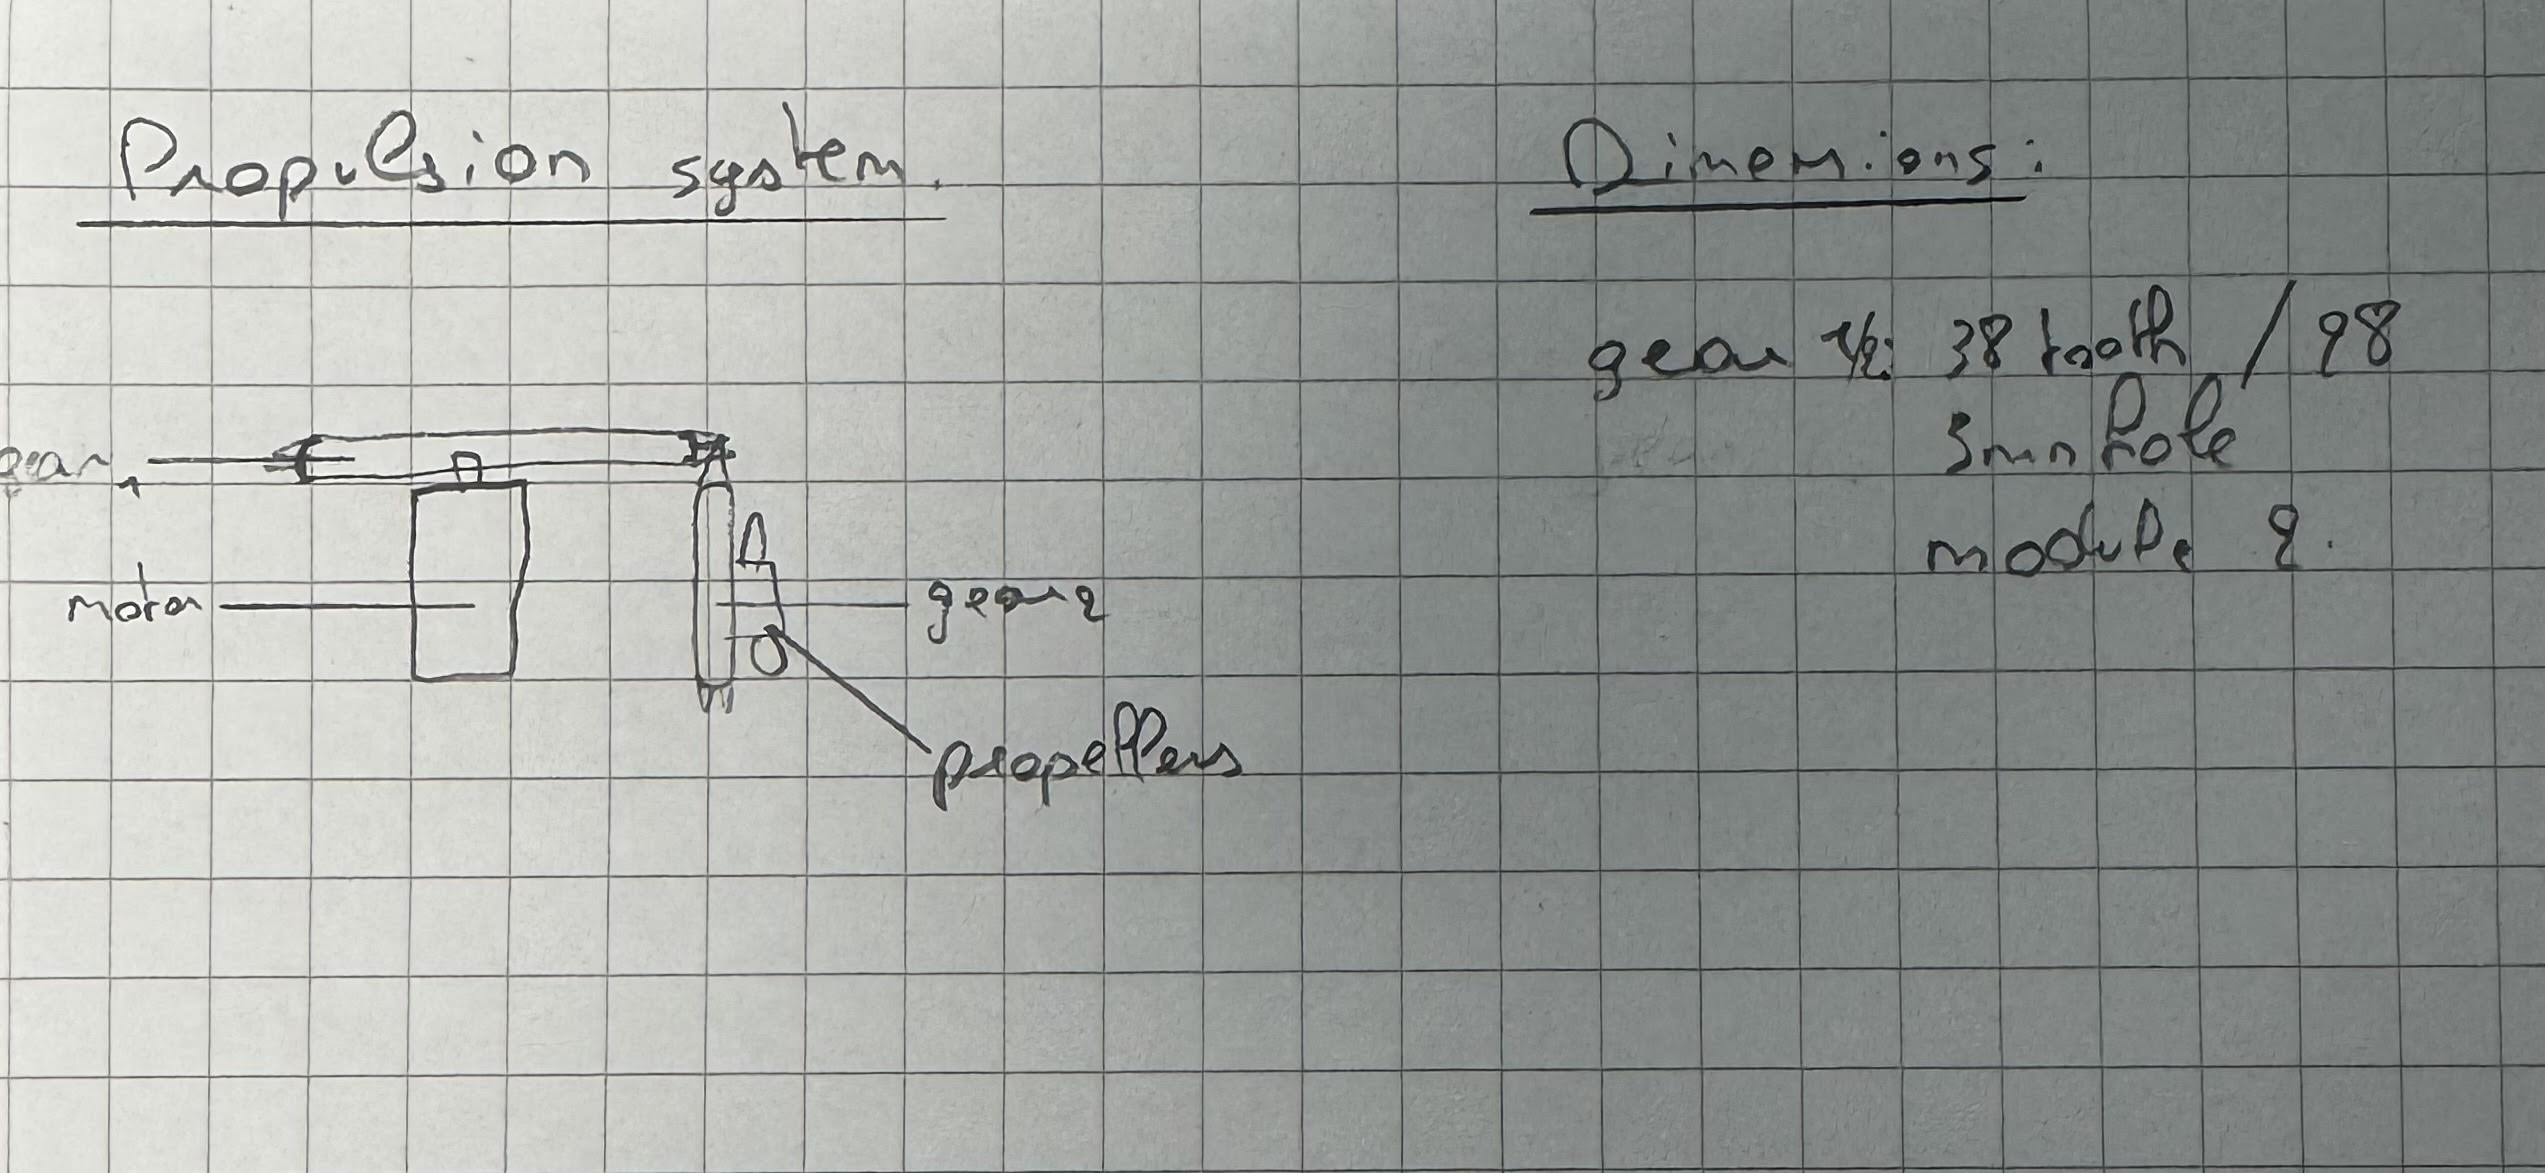 Propulsion system.
Dimensions:
gear 1/2: 38 tooth / 28
3mm hole
module 2.
gear 1
motor
gear 2
propellers